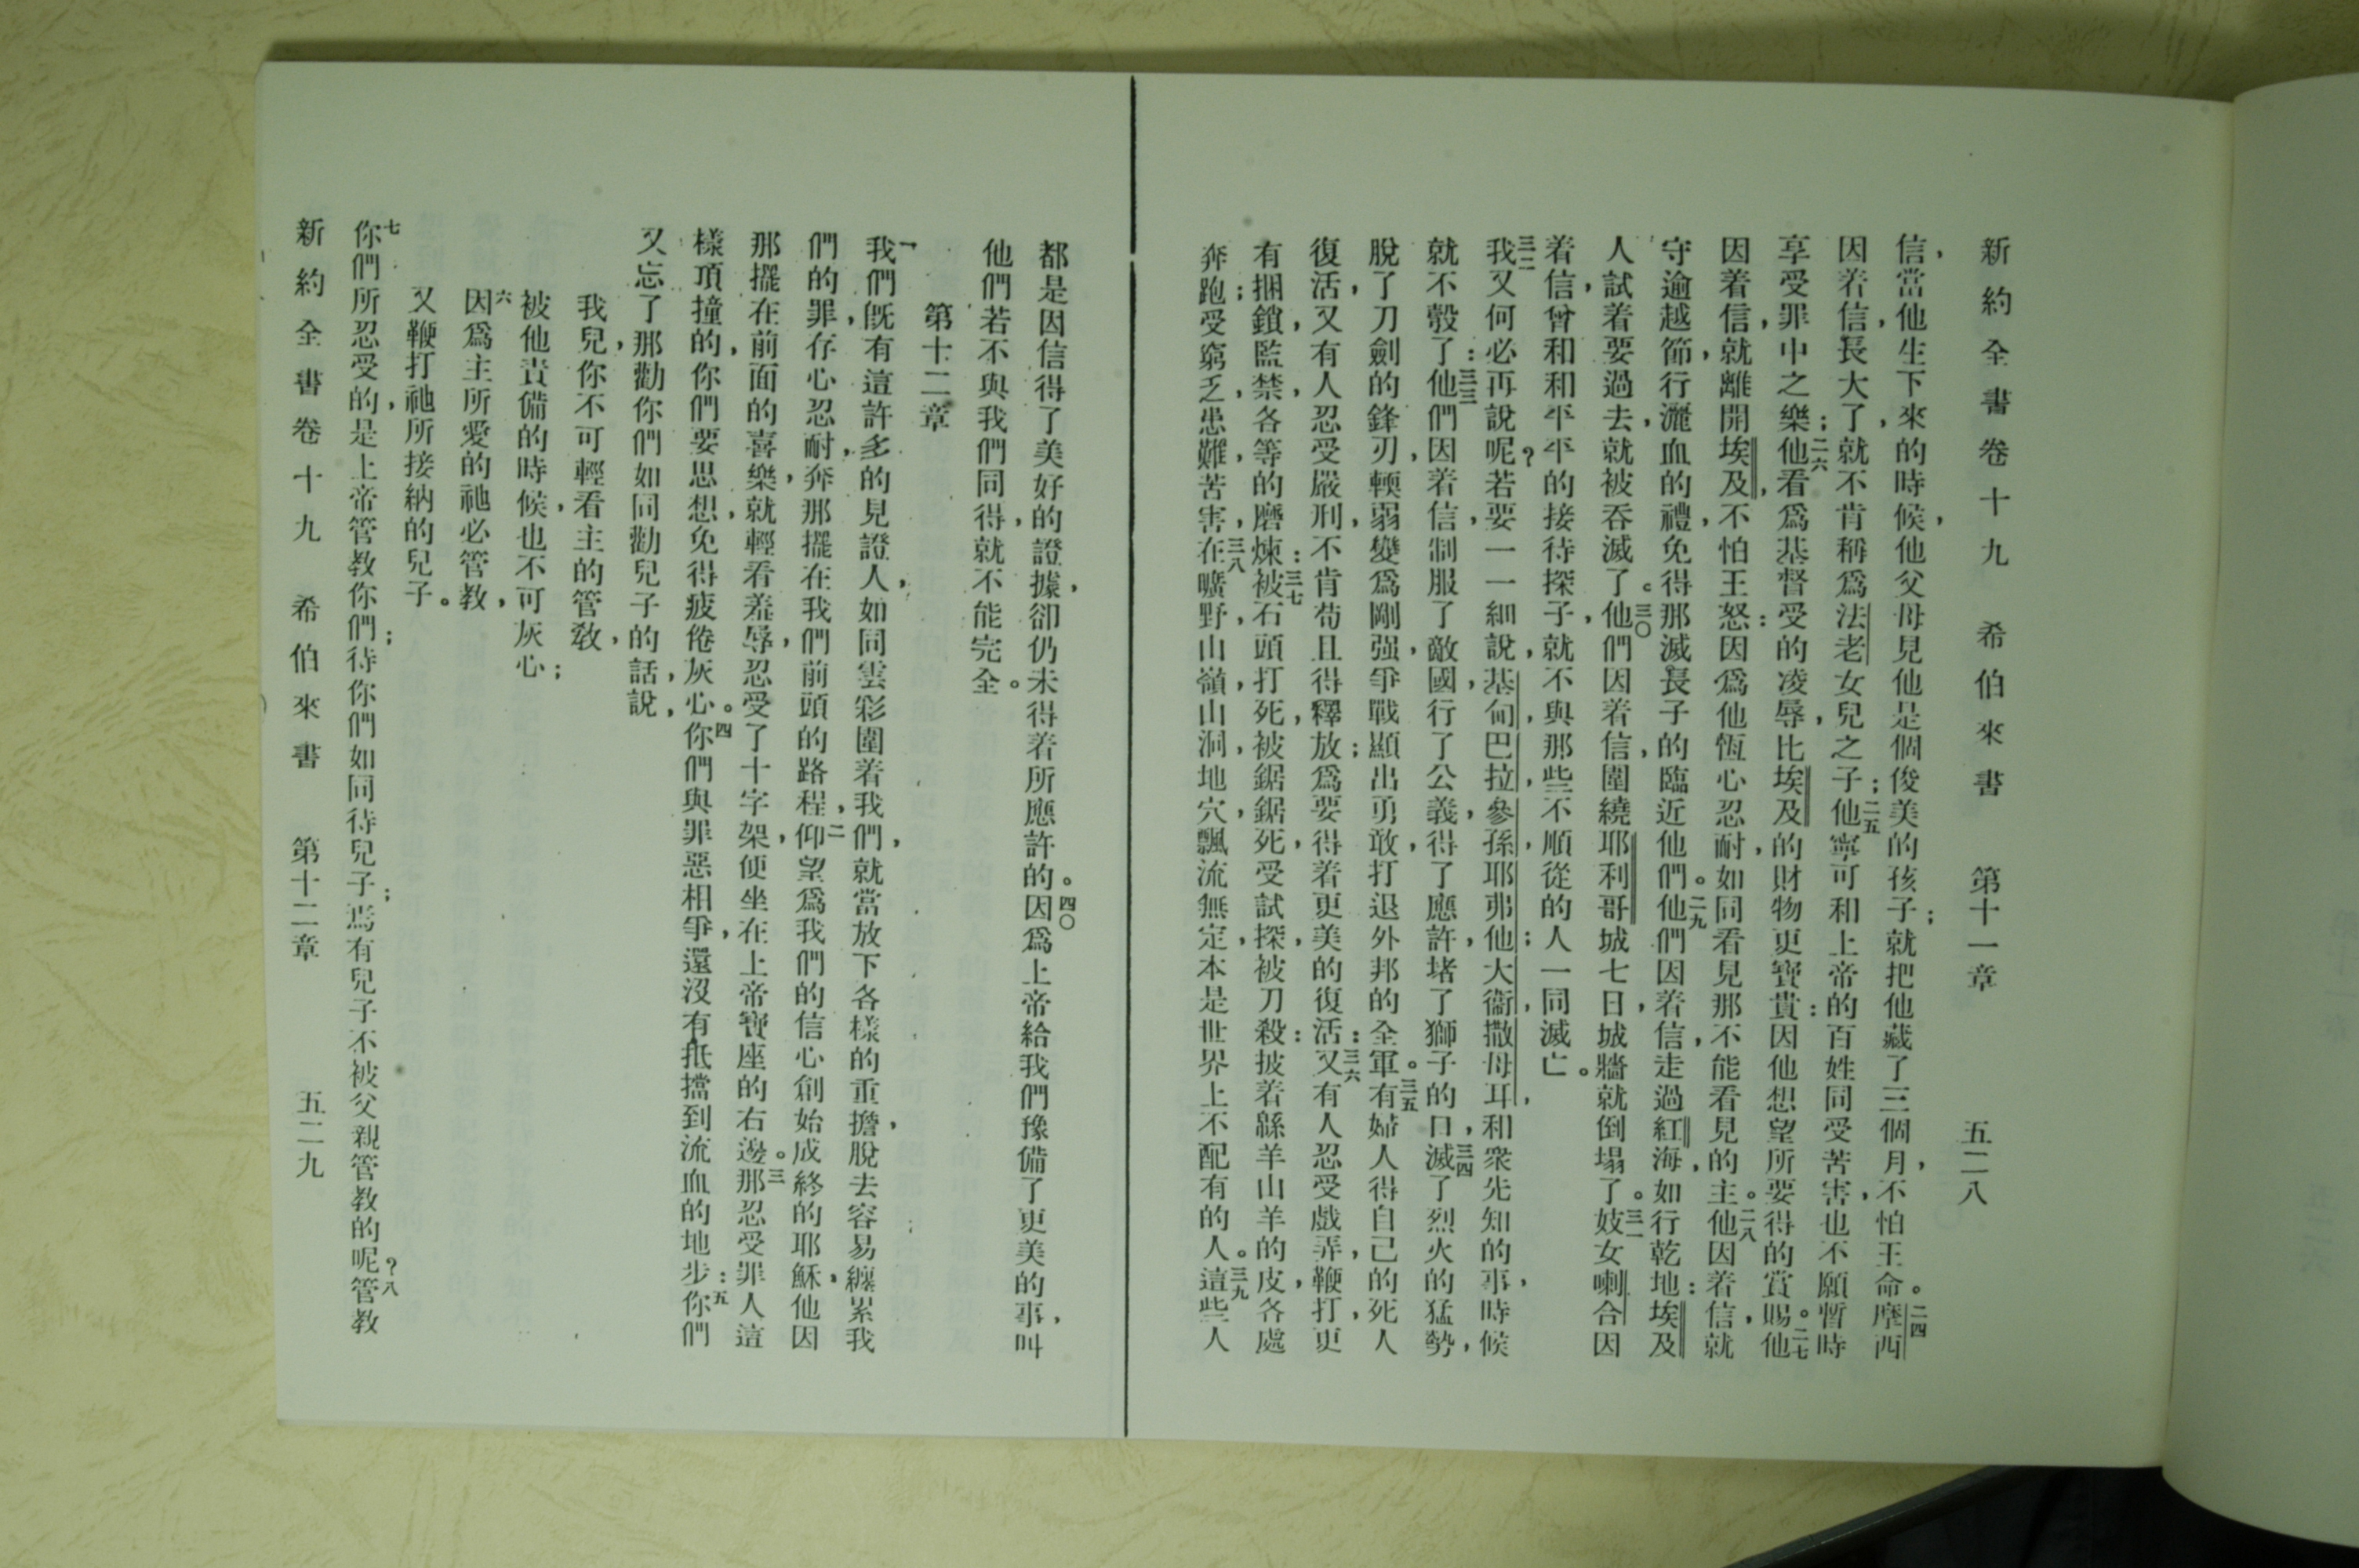 新約全書卷十九　希伯來書　第十一章　五二八
信，當他生下來的時候，他父母見他是個俊美的孩子；就把他藏了三個月，不怕王命。二四摩西
因着信，長大了，就不肯稱爲法老女兒之子；二五他寧可和上帝的百姓同受苦害，也不願暫時
享受罪中之樂；二六他看爲基督受的凌辱，比埃及的財物更寶貴：因他想望所要得的賞賜。二七他
因着信，就離開埃及，不怕王怒：因爲他恆心忍耐，如同看見那不能看見的主。二八他因着信，就
守逾越節，行灑血的禮，免得那滅長子的臨近他們。二九他們因着信，走過紅海，如行乾地：埃及
人試着要過去，就被吞滅了。三〇他們因着信，圍繞耶利哥城七日，城牆就倒塌了。三一妓女喇合因
着信，曾和和平平的接待探子，就不與那些不順從的人一同滅亡。
三二我又何必再說呢？若要一一細說，基甸，巴拉，參孫，耶弗他；大衞，撒母耳，和衆先知的事，時候
就不彀了：三三他們因着信，制服了敵國，行了公義，得了應許，堵了獅子的口，三四滅了烈火的猛勢，
脫了刀劍的鋒刃，輭弱變爲剛强，爭戰顯出勇敢，打退外邦的全軍。三五有婦人得自己的死人
復活，又有人忍受嚴刑，不肯苟且得釋放；爲要得着更美的復活：三六又有人忍受戲弄，鞭打，更
有捆鎖，監禁，各等的磨煉：三七被石頭打死，被鋸鋸死，受試探，被刀殺：披着緜羊山羊的皮，各處
奔跑；受窮乏，患難，苦害，三八在曠野，山嶺，山洞，地穴，飄流無定，本是世界上不配有的人。三九這些人
都是因信得了美好的證據，卻仍未得着所應許的。四〇因爲上帝給我們豫備了更美的事，叫
他們若不與我們同得，就不能完全。
第十二章
一我們旣有這許多的見證人，如同雲彩圍着我們，就當放下各樣的重擔，脫去容易纏累我
們的罪，存心忍耐，奔那擺在我們前頭的路程，二仰望爲我們的信心創始成終的耶穌，他因
那擺在前面的喜樂，就輕看羞辱，忍受了十字架，便坐在上帝寶座的右邊。三那忍受罪人這
樣頂撞的，你們要思想，免得疲倦灰心。四你們與罪惡相爭，還沒有抵擋到流血的地步：五你們
又忘了那勸你們如同勸兒子的話，說，
我兒，你不可輕看主的管敎，
被他責備的時候，也不可灰心；
六因爲主所愛的祂必管敎，
又鞭打祂所接納的兒子。
七你們所忍受的，是上帝管敎你們；待你們如同待兒子；焉有兒子不被父親管敎的呢？八管敎
新約全書卷十九　希伯來書　第十二章　五二九